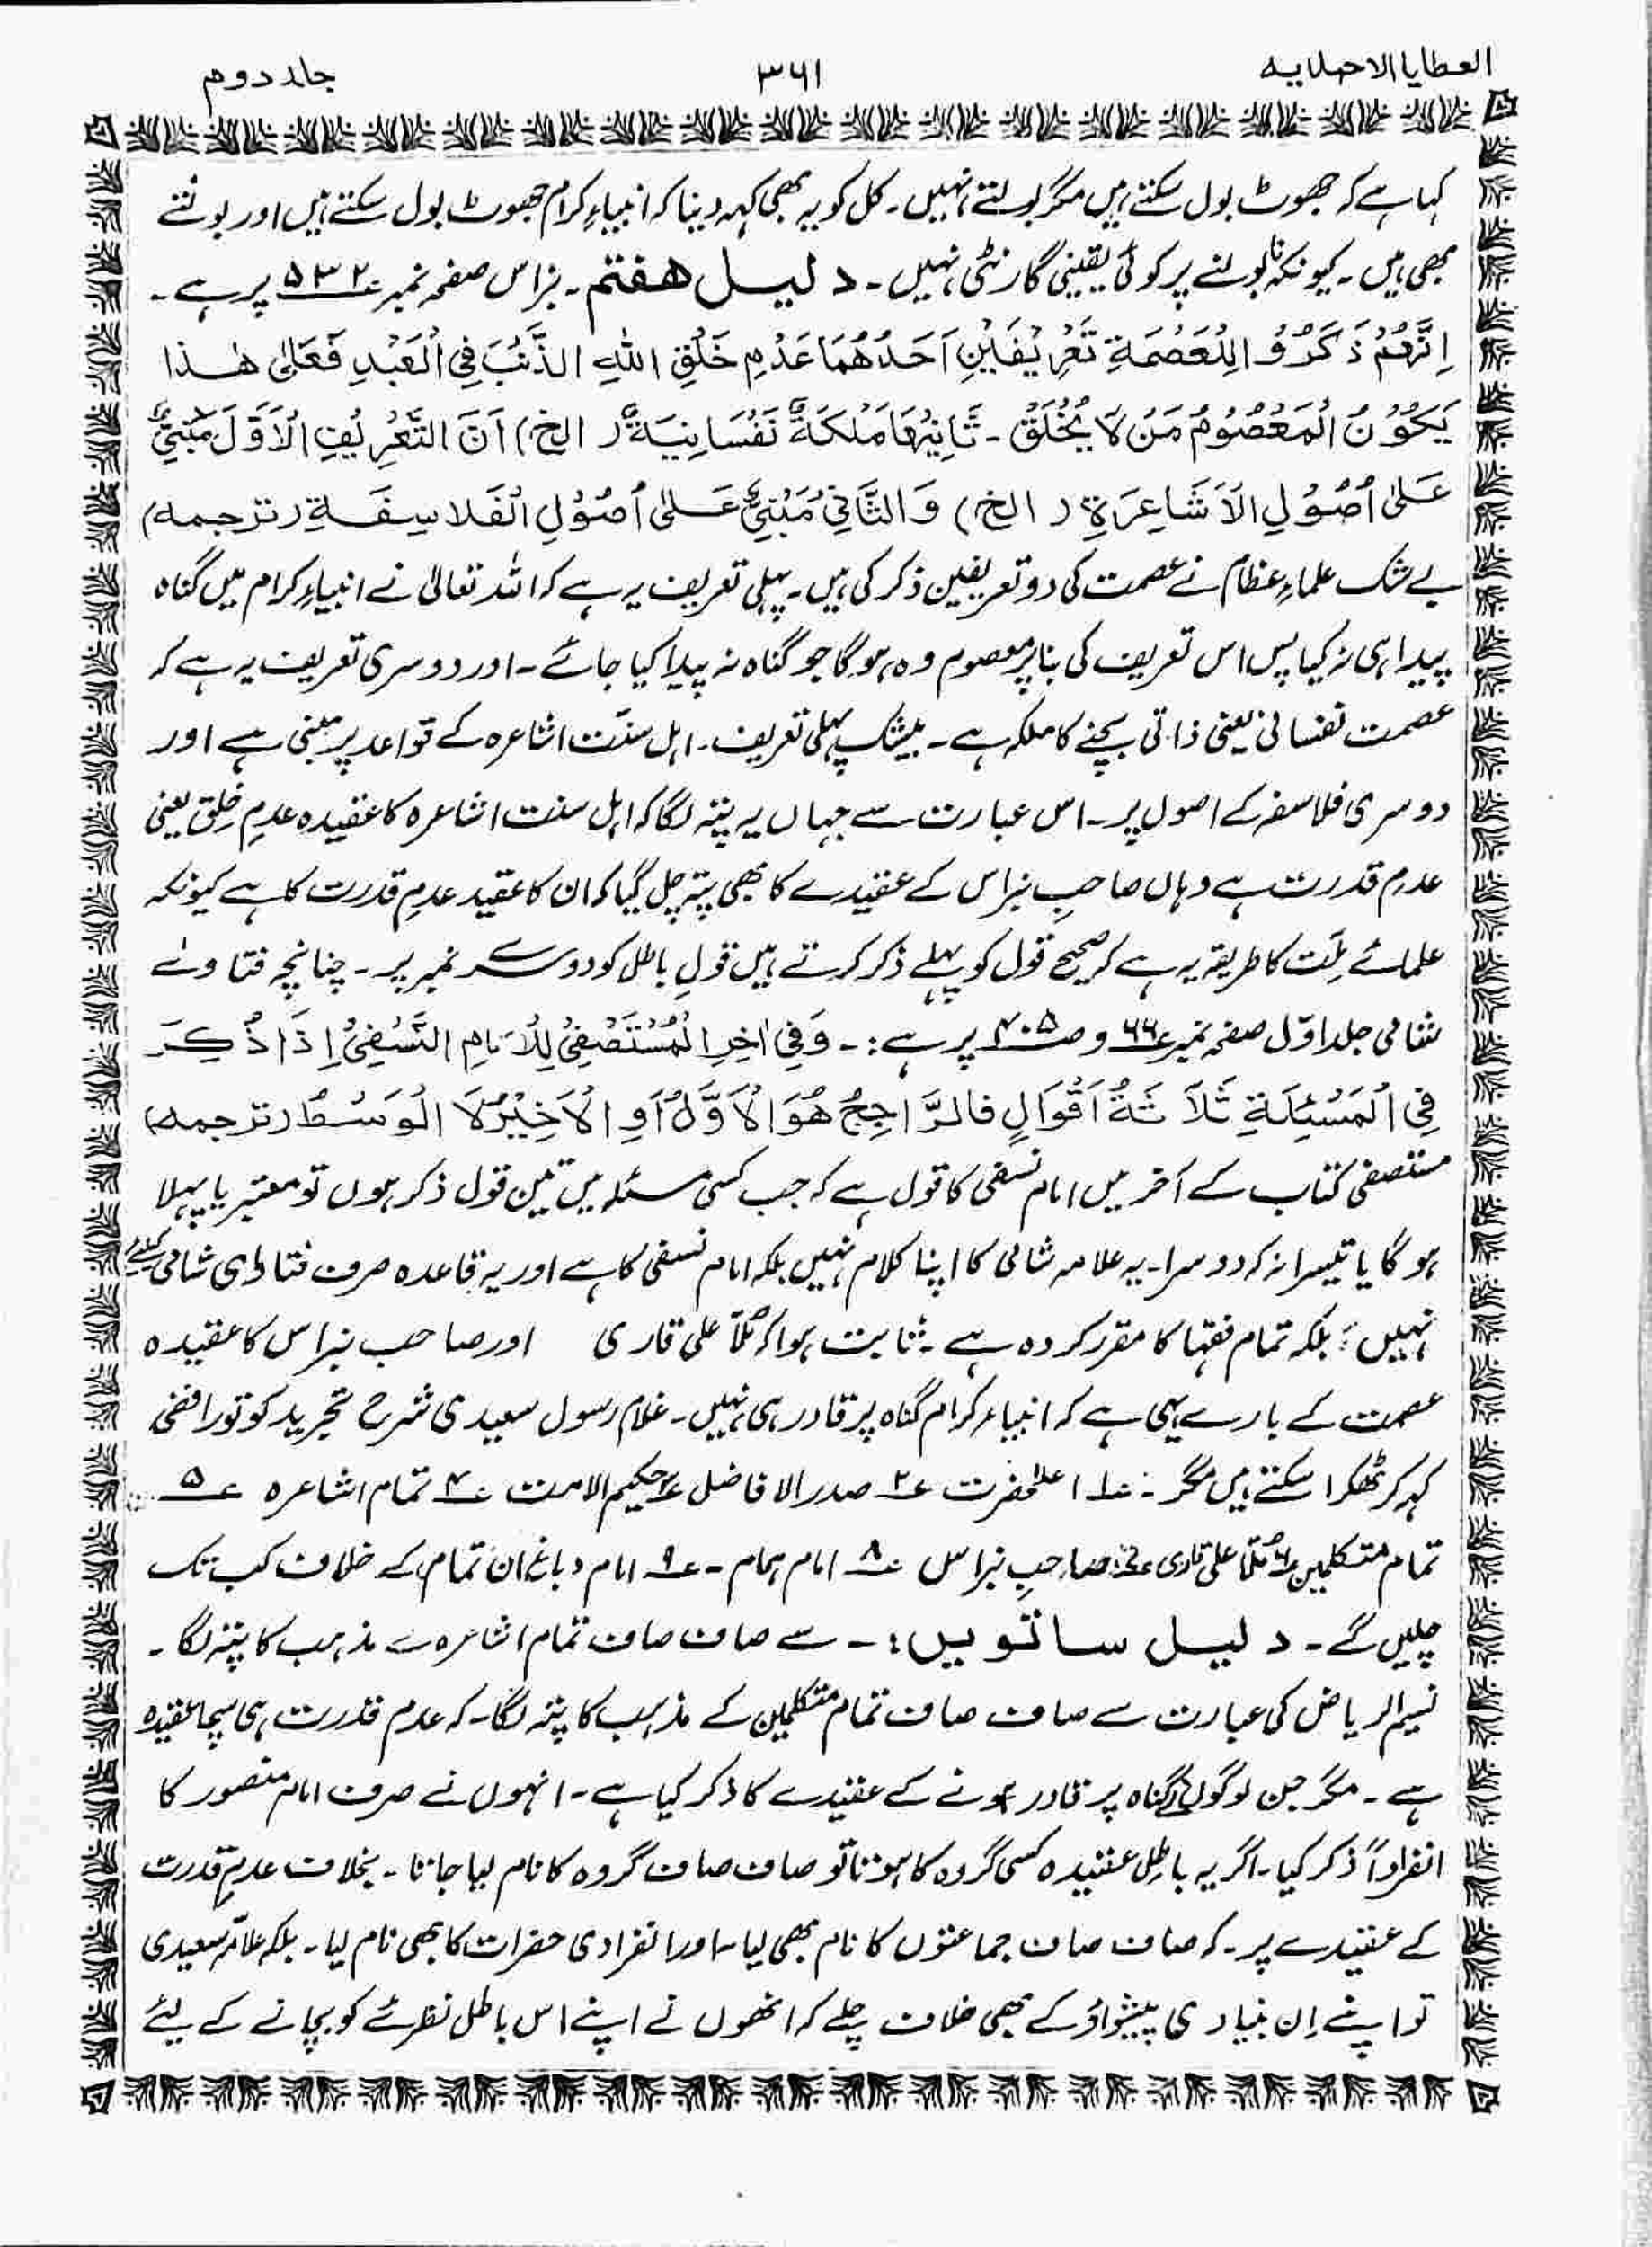 العطایا الاحمدیہ
۳۶۱
جلد دوم
کہا ہے کہ جھوٹ بول سکتے ہیں مگر بولتے نہیں۔ کل کو یہ بھی کہہ دینا کہ انبیاءِ کرام جھوٹ بول سکتے ہیں اور بولتے
بھی ہیں۔ کیونکہ نا بولنے پر کوئی یقینی گارنٹی نہیں۔ دلیل ھفتم۔ نبراس صفحہ نمبر ۵۳۲ پر ہے۔
اِنَّھُمْ ذَکَرُوْ الِلْعَصْمَةِ تَعْرِیْفَیْنِ اَحَدُھُمَا عَدْمِ خَلْقِ اللهِ الذَّنْبَ فِی الْعَبْدِ فَعَلٰی ھٰذا
یَکُوْنُ الْمَعْصُوْمُ مَنْ لَا یُخْلَقُ۔ ثَانِیْھَا مَلْکَةٌ نَفْسَانِیَةٌ ( الخ) اَنَّ التَّعْرِیْفِ الْاَوَّلَ مَبْنِیٌّ
عَلٰی اُصُوْلِ الْاَشَاعِرَةِ ( الخ) وَالثَّانِیْ مَبْنِیٌّ عَلٰی اُصُوْلِ الْفَلاسِفَةِ (ترجمہ)
بے شک علماءِ عظام نے عصمت کی دو تعریفیں ذکر کی ہیں۔ پہلی تعریف یہ ہے کہ اللہ تعالیٰ نے انبیاءِ کرام میں گناہ
پیدا ہی نہ کیا پس اس تعریف کی بنا پر معصوم وہ ہوگا جو گناہ نہ پیدا کیا جائے۔ اور دوسری تعریف یہ ہے کہ
عصمت نفسانی یعنی ذاتی بچنے کا ملکہ ہے۔ بیشک پہلی تعریف۔ اہل سنّت اشاعرہ کے قواعد پر مبنی ہے اور
دوسری فلاسفہ کے اصول پر۔ اس عبارت سے جہاں یہ پتہ لگا کہ اہل سنت اشاعرہ کا عقیدہ عدمِ خلق یعنی
عدمِ قدرت ہے وہاں صاحبِ نبراس کے عقیدے کا بھی پتہ چل گیا کہ ان کا عقید عدمِ قدرت کا ہے کیونکہ
علمائے مِلّت کا طریقہ یہ ہے کہ صحیح قول کو پہلے ذکر کرتے ہیں قولِ باطل کو دوسرے نمبر پر۔ چنانچہ فتاوٰے
شامی جلد اوّل صفحہ نمبر ۶۶ و ص ۴۰۵ پر ہے:۔ وَفِیْ اٰخِرِ الْمُسْتَصْفِیْ لِلْاِمَامِ النَّسْفِیْ اِذَا ذُکِرَ
فِی الْمَسْئِلَةِ ثَلَاثَةُ اَقْوَالٍ فالرَّاجِحُ ھُوَ الْاَوَّلُ اَوِ الْاَخِیْرُ لَا الْوَسْطُ (ترجمہ)
مستصفیٰ کتاب کے آخر میں امام نسفی کا قول ہے کہ جب کسی مسئلہ میں تین قول ذکر ہوں تو معتبر یا پہلا
ہوگا یا تیسرا نہ کہ دوسرا۔ یہ علامہ شامی کا اپنا کلام نہیں بلکہ امام نسفی کا ہے اور یہ قاعدہ صرف فتاوٰی شامی کیلئے
نہیں: بلکہ تمام فقہا کا مقرر کردہ ہے۔ ثابت ہوا کہ مُلّا علی قاری اور صاحب نبراس کا عقیدہ
عصمت کے بارے یہی ہے کہ انبیاء کرام گناہ پر قادر ہی نہیں۔ غلام رسول سعیدی شرح تجرید کو تو رافضی
کہہ کر ٹھکرا سکتے ہیں مگر:۔ ۱ اعلحضرت ۲ صدر الافاضل ۳ حکیم الامت ۴ تمام اشاعرہ ۵
تمام متکلمین ۶ مُلّا علی قاری ۷ صاحبِ نبراس ۸ امام ہمام۔ ۹ امام دباغ ان تمام کے خلاف کب تک
چلیں گے۔ دلیل ساتویں:۔ سے صاف صاف تمام اشاعرہ کے مذہب کا پتہ لگا۔
نسیم الریاض کی عبارت سے صاف صاف تمام متکلمین کے مذہب کا پتہ لگا۔ کہ عدم قدرت ہی سچا عقیدہ
ہے۔ مگر جن لوگوں نے گناہ پر قادر ہونے کے عقیدے کا ذکر کیا ہے۔ انہوں نے صرف امام منصور کا
انفراداً ذکر کیا۔ اگر یہ باطل عقیدہ کسی گروہ کا ہوتا تو صاف صاف گروہ کا نام لیا جاتا۔ بخلاف عدمِ قدرت
کے عقیدے پر۔ کہ صاف صاف جماعتوں کا نام بھی لیا۔ اور انفرادی حضرات کا بھی نام لیا۔ بلکہ علامہ سعیدی
تو اپنے اِن بنیادی پیشواؤ کے بھی خلاف چلے کہ انھوں نے اپنے اس باطل نظرئے کو بچانے کے لیئے